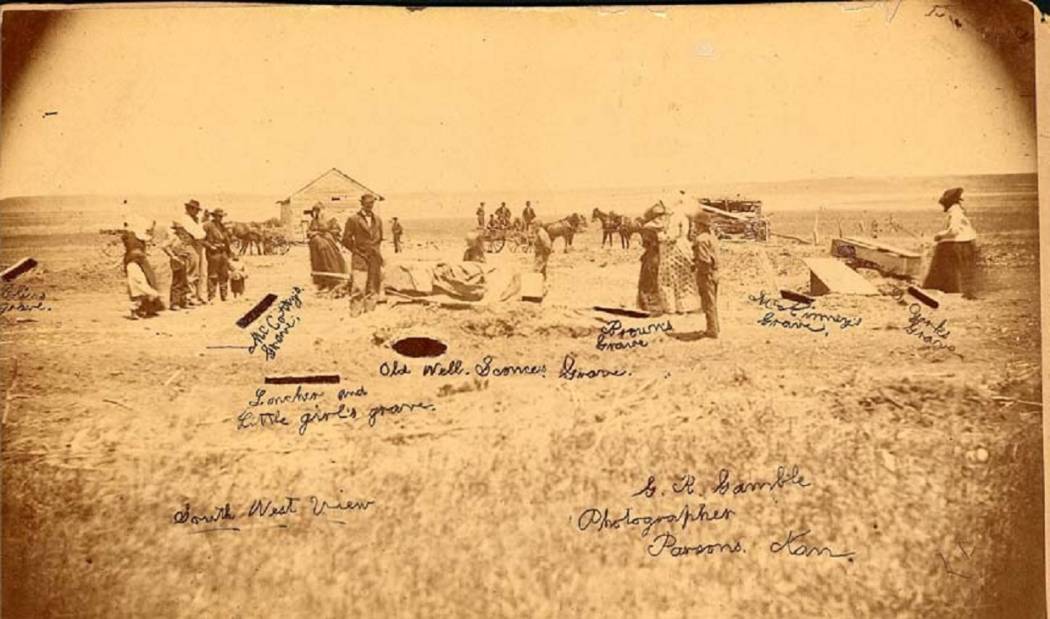 grave.
McCortzy's
Grave.
Old Well. Sconces Grave.
Browns
Grave
McKinney's
Grave,
Yorks
Grave
Loncher and
Little girl's grave.
South West View
G. R. Gamble
Photographer
Parsons. Kan.